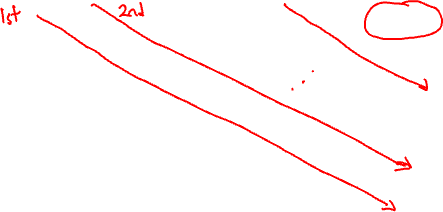 1st 2nd